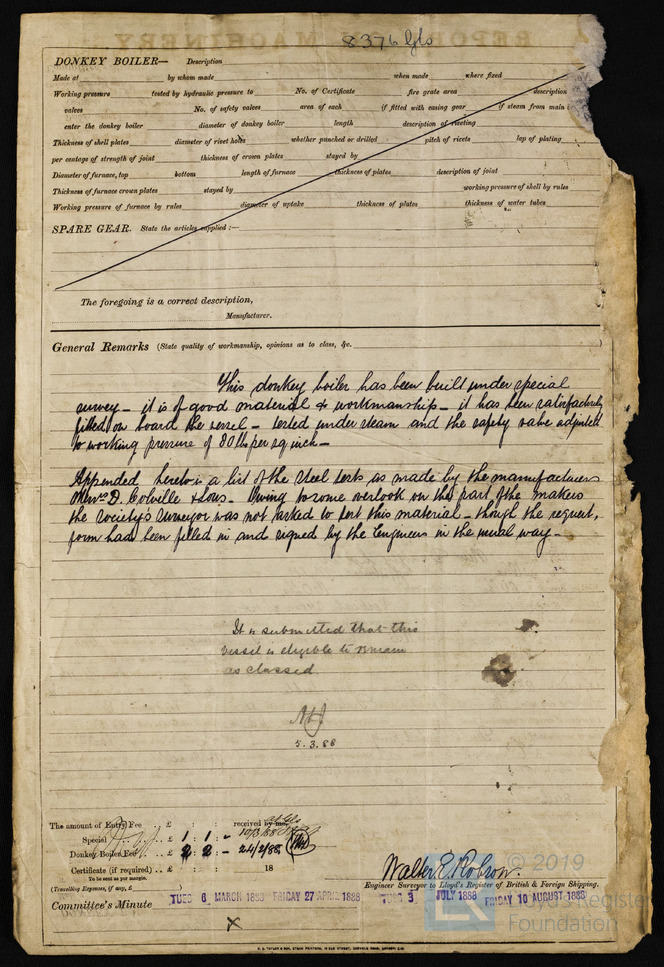 8376 Gls
DONKEY BOILER— Description
Made at by whom made when made where fixed
Working pressure tested by hydraulic pressure to No. of Certificate fire grate area description
valves No. of safety valves area of each if fitted with easing gear if steam from main
enter the donkey boiler diameter of donkey boiler length description of riveting
Thickness of shell plates diameter of rivet holes whether punched or drilled pitch of rivets lap of plating
per centage of strength of joint thickness of crown plates stayed by
Diameter of furnace, top bottom length of furnace thickness of plates description of joint
Thickness of furnace crown plates stayed by working pressure of shell by rules
Working pressure of furnace by rules diameter of uptake thickness of plates thickness of water tubes
SPARE GEAR. State the articles supplied :—
The foregoing is a correct description,
Manufacturer.
General Remarks (State quality of workmanship, opinions as to class, &c.
This donkey boiler has been built under special
survey - it is of good material & workmanship - it has been satisfactorily
fitted on board the vessel - tested under steam and the safety valve adjusted
to working pressure of 80 lbs per sq inch -
Appended hereto is a list of the steel tests as made by the manufacturers
Messrs D. Colville & Sons - Owing to some overlook on the part of the makers
the society's surveyor was not asked to test this material - though the request,
form had been filled in and signed by the Engineers in the usual way -
It is submitted that this
vessel is eligible to remain
as classed
5.3.88
The amount of Entry Fee .. £ : : received by me,
Special .. £ 1 : 1 : - 10/3/88
Donkey Boiler Fee .. £ 2 : 2 : - 24/2/88
Certificate (if required) .. £ : : 18
To be sent as per margin.
(Travelling Expenses, if any, £
Walter E. Robson.
Engineer Surveyor to Lloyd's Register of British & Foreign Shipping.
Committee's Minute TUES 6 MARCH 1888 FRIDAY 27 APRIL 1888 TUES 3 JULY 1888 FRIDAY 10 AUGUST 1888
X
© 2019
Lloyd's Register
Foundation